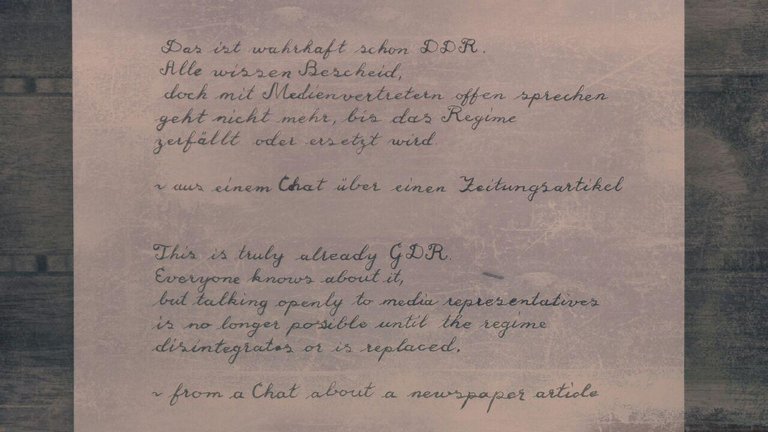 Das ist wahrhaft schon DDR.
Alle wissen Bescheid,
doch mit Medienvertretern offen sprechen
geht nicht mehr, bis das Regime
zerfällt oder ersetzt wird.
~ aus einem Chat über einen Zeitungsartikel
This is truly already GDR.
Everyone knows about it,
but talking openly to media representatives
is no longer possible until the regime
disintegrates or is replaced.
~ from a Chat about a newspaper article